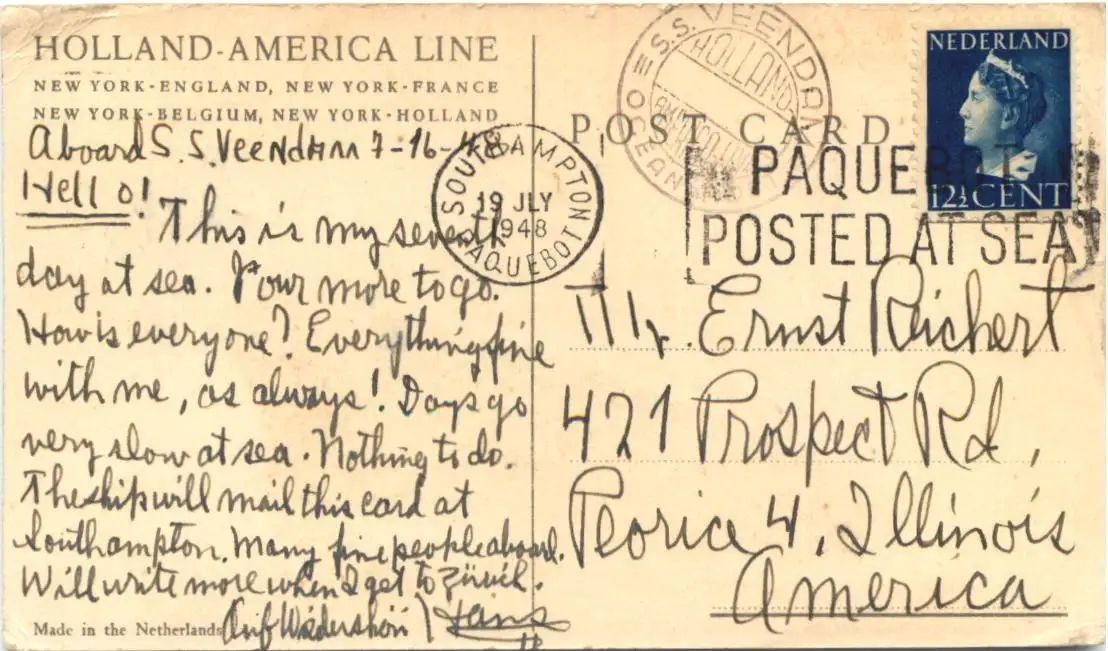 HOLLAND-AMERICA LINE
NEW YORK-ENGLAND, NEW YORK-FRANCE
NEW YORK-BELGIUM, NEW YORK-HOLLAND
Aboard S.S. Veendam 7-16-48
Hello!
This is my seventh
day at sea. Four more to go.
How is everyone? Everything fine
with me, as always! Days go
very slow at sea. Nothing to do.
The ship will mail this card at
Southampton. Many fine people aboard.
Will write more when I get to Zürich.
Auf Wiedersehen Hans
Made in the Netherlands
SOUTHAMPTON
19 JLY
1948
PAQUEBOT
S.S. VEENDAM
HOLLAND
OCEAN
POST CARD
NEDERLAND
12½ CENT
PAQUEBOT
POSTED AT SEA
Mr. Ernst Reichert
421 Prospect Rd,
Peoria 4, Illinois
America